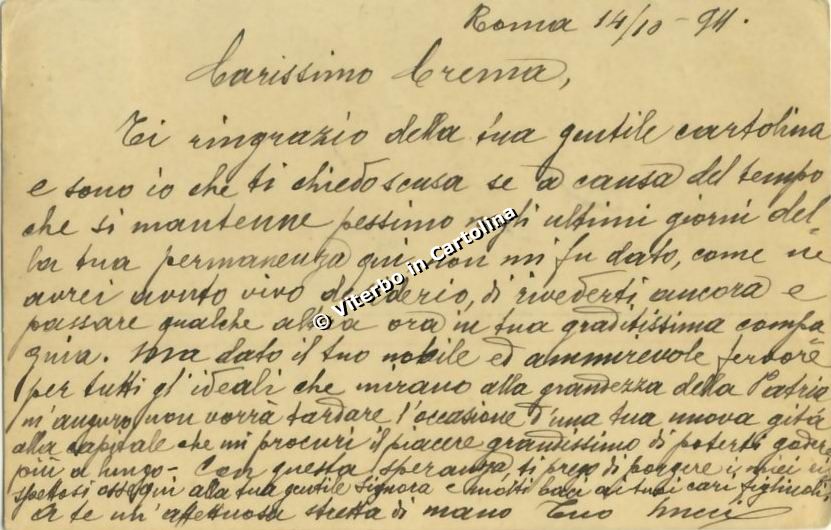 Roma 14/10-911.
Carissimo Crema,
Ti ringrazio della tua gentile cartolina
e sono io che ti chiedo scusa se a causa del tempo
che si mantenne pessimo negli ultimi giorni del-
la tua permanenza qui, non mi fu dato, come ne
avrei avuto vivo desiderio, di rivederti ancora e
passare qualche altra ora in tua graditissima compa
gnia. Ma dato il tuo nobile ed ammirevole fervore
per tutti gl'ideali che mirano alla grandezza della Patria
m'auguro non vorrà tardare l'occasione d'una tua nuova gita
alla capitale che mi procuri il piacere grandissimo di poterti godere
più a lungo - Con questa speranza, ti prego di porgere i miei ri
spettosi ossequi alla tua gentile Signora e molti baci ai tuoi cari figliuoli
A te un'affettuosa stretta di mano Tuo
© Viterbo in Cartolina